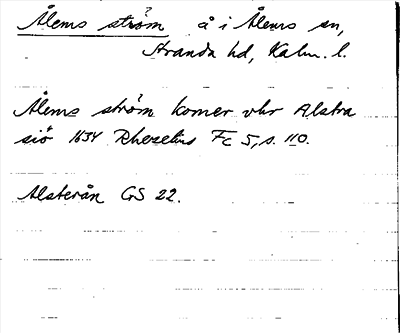 Ålems ström å i Ålems sn,
Stranda hd, Kalm. l.
Ålems ström komer vhr Alstra
siö 1634 Rhezelius Fc 5, s. 110.
Alsterån GS 22.